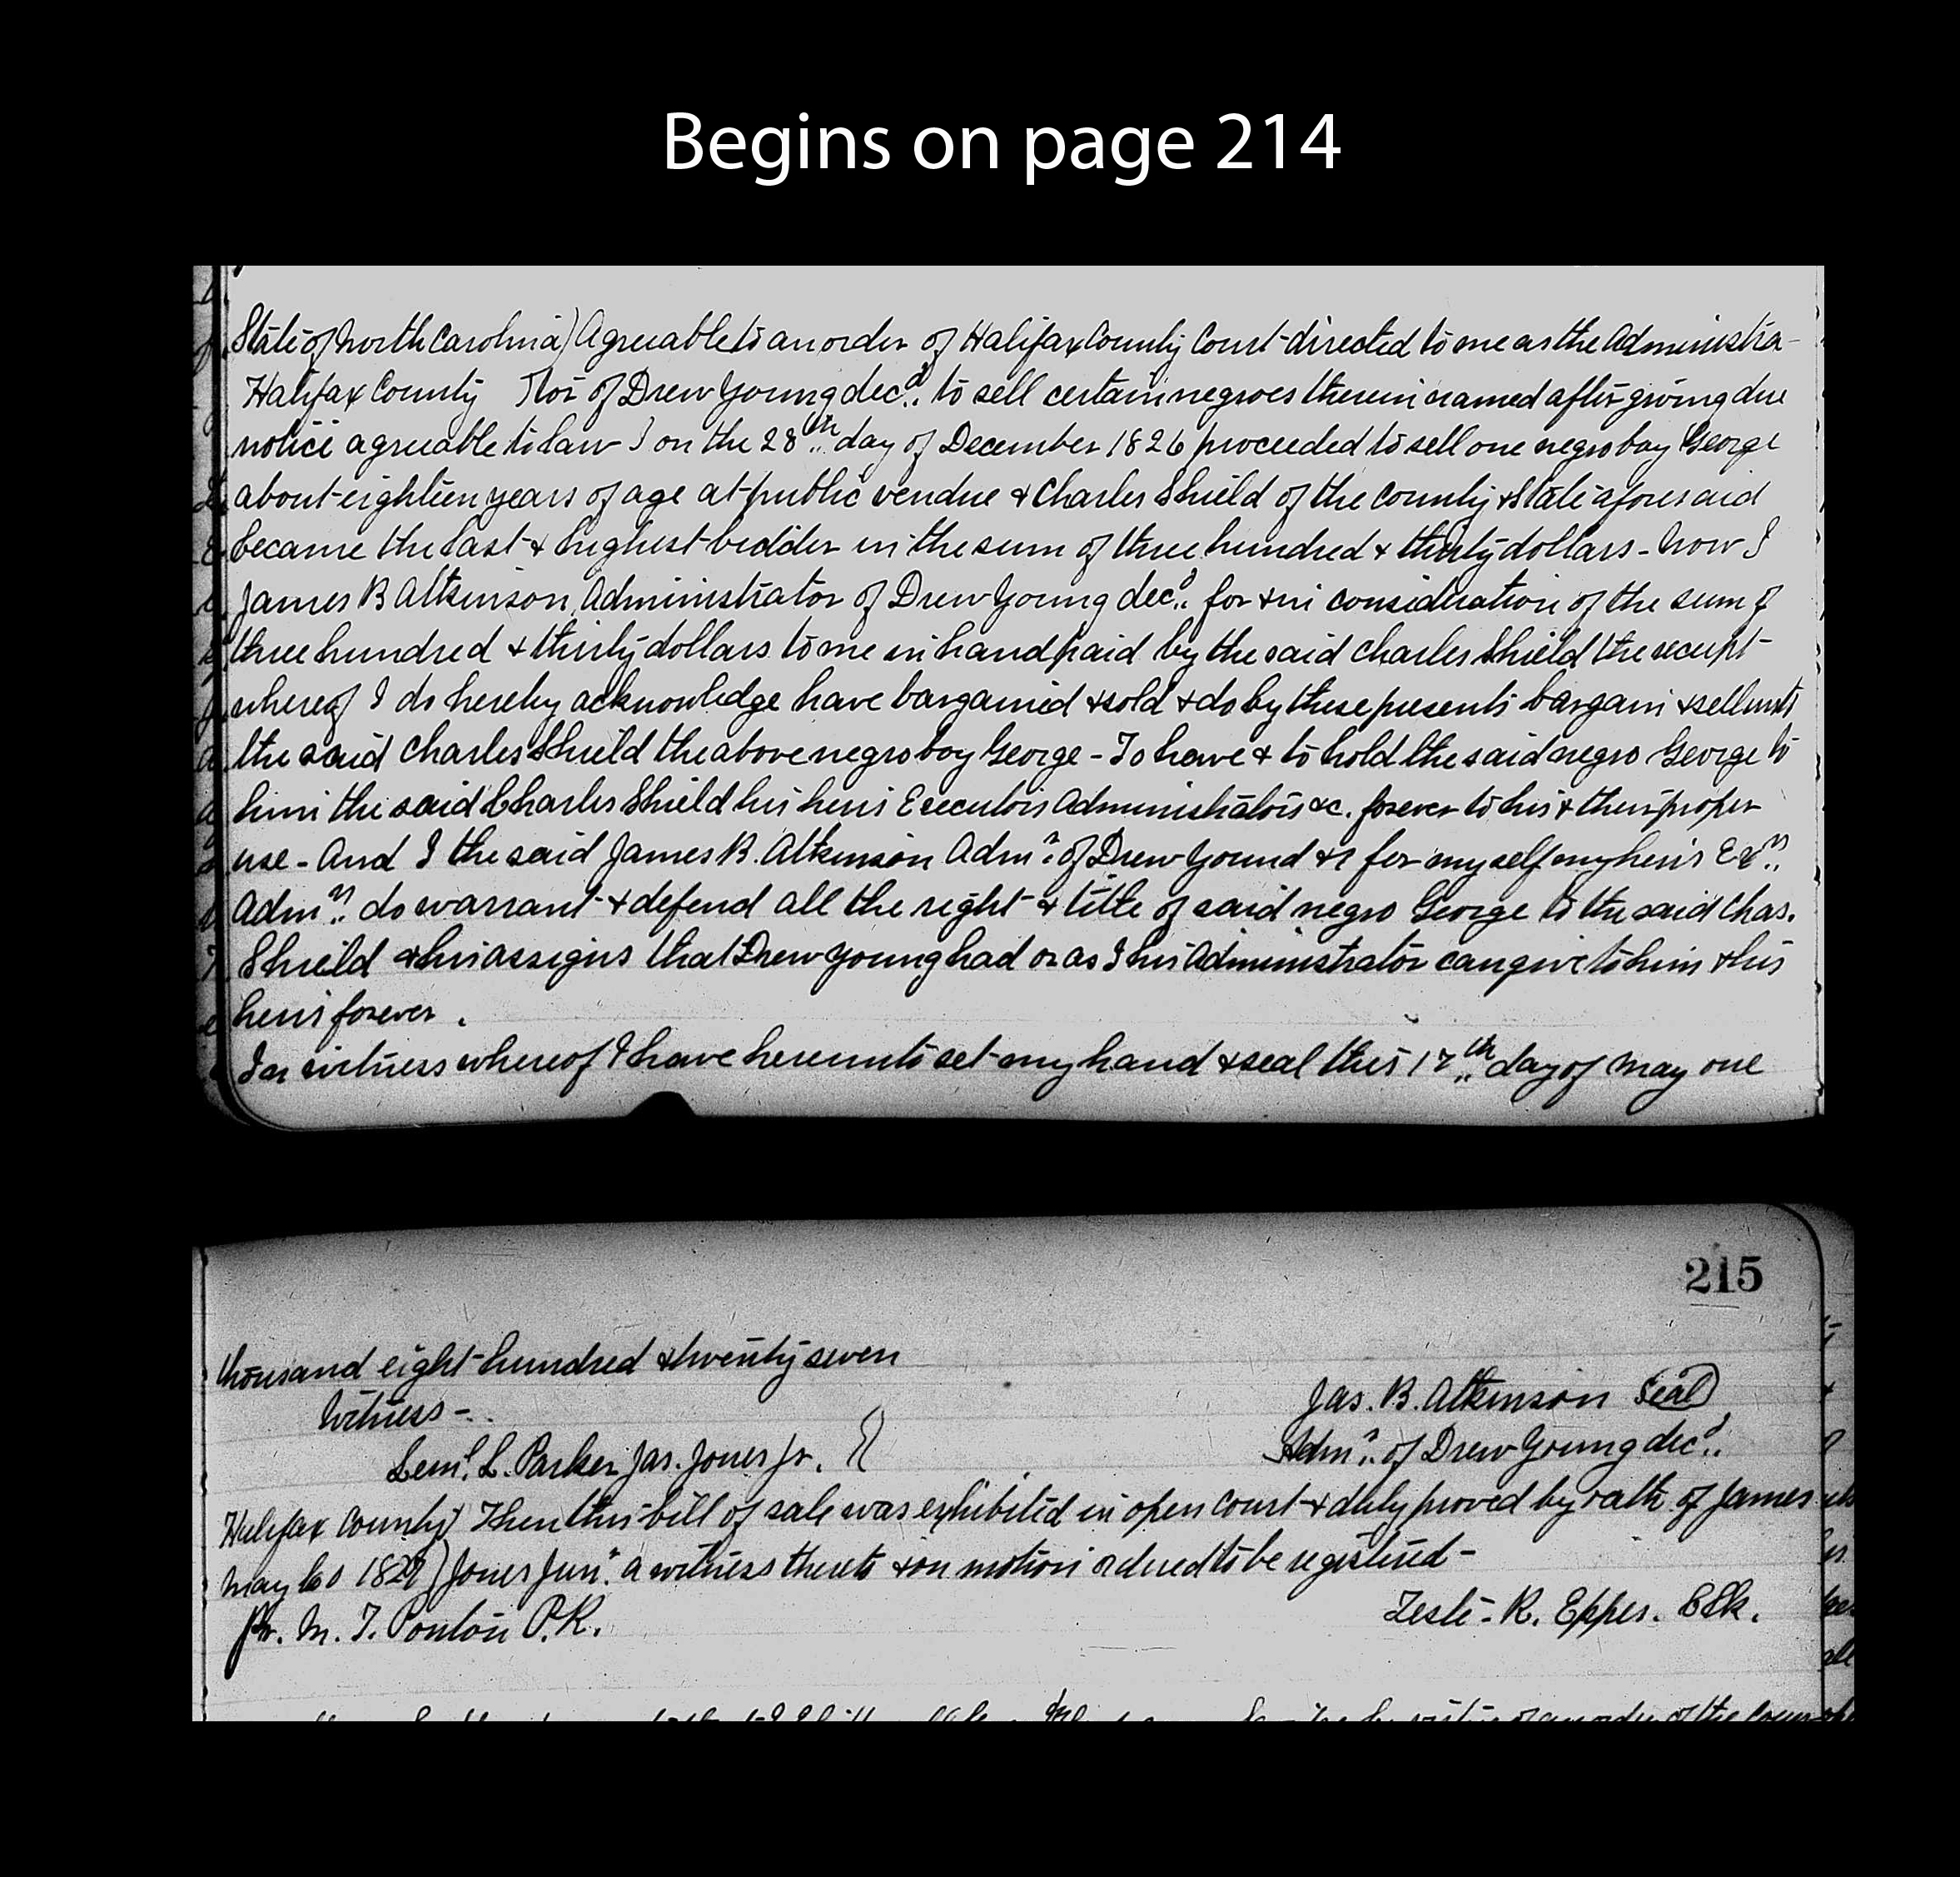 Begins on page 214
State of North Carolina) Agreeable to an order of Halifax County Court directed to me as the Administra-
Halifax County } tor of Drew Young dec.d to sell certain negroes therein named after giving due
notice agreeable to law I on the 28th day of December 1826 proceeded to sell one negro boy George
about eighteen years of age at public vendue & Charles Shield of the County & State aforesaid
became the last & highest bidder in the sum of three hundred & thirty dollars - Now I
James B Atkinson, Administrator of Drew Young dec.d for & in consideration of the sum of
three hundred & thirty dollars to me in hand paid by the said Charles Shield the receipt
whereof I do hereby acknowledge have bargained & sold & do by these presents bargain & sell unto
the said Charles Shield the above negro boy George - To have & to hold the said negro George to
him the said Charles Shield his heirs Executors Administrators &c. forever to his & their proper
use - And I the said James B. Atkinson Adm.r of Drew Yound & for myself my heirs Ex.rs
Adm.rs do warrant & defend all the right & title of said negro George to the said Chas.
Shield & his assigns that Drew Young had or as I his Administrator can give to him & his
heirs forever.
In witness whereof I have hereunto set my hand & seal this 17th day of May one
215
thousand eight hundred & twenty seven
Witness -
Jas. B. Atkinson Seal
Leml. L. Parker Jas. Jones Jr. }
Adm.r of Drew Young dec.d
Halifax County) Then this bill of sale was exhibited in open court & duly proved by oath of James
May 1827) Jones Junr. a witness thereto & on motion ordered to be registered -
Pr. M. T. Ponton P.R.
Teste - R. Eppes. Clk.